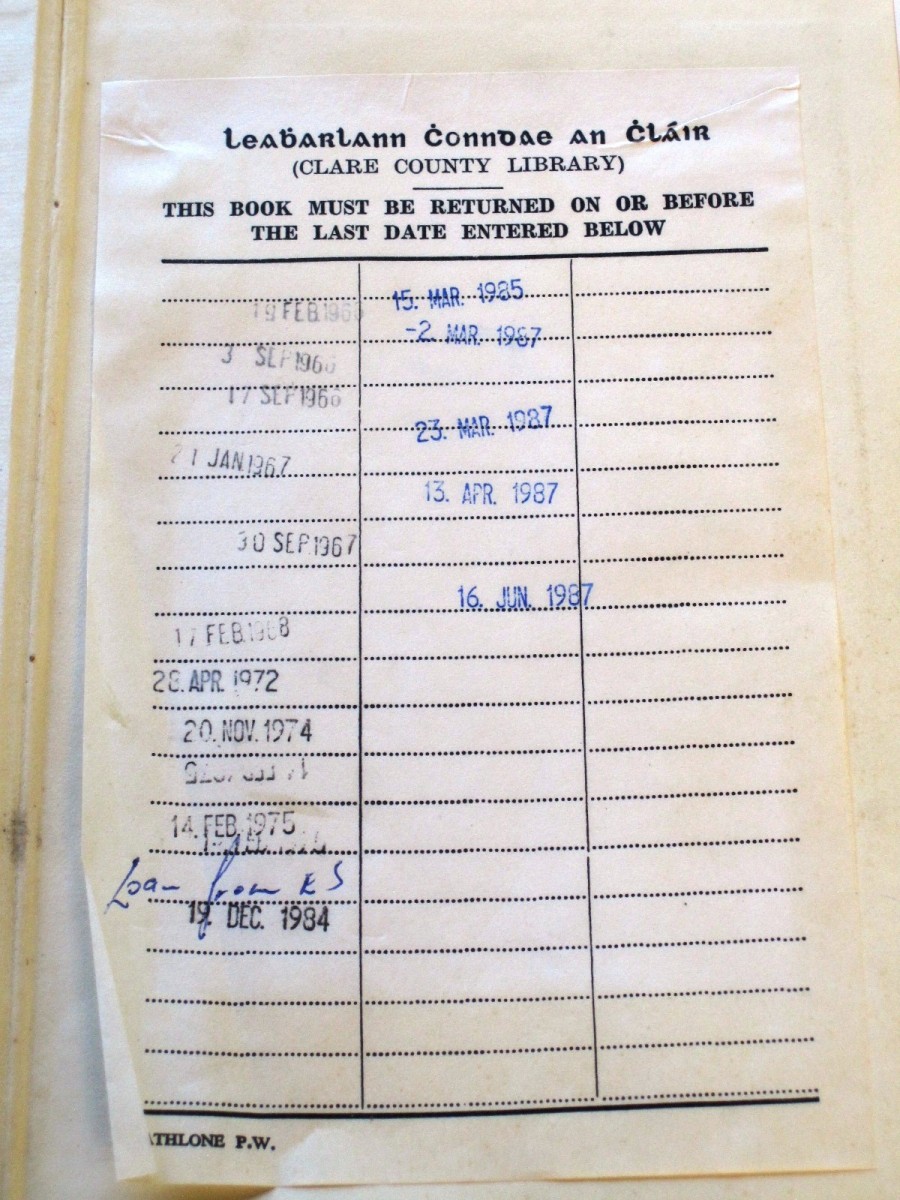 Leaḃarlann Ċonndae an Ċláir
(CLARE COUNTY LIBRARY)
THIS BOOK MUST BE RETURNED ON OR BEFORE
THE LAST DATE ENTERED BELOW
19 FEB 1966
3 SEP 1966
17 SEP 1966
21 JAN 1967
30 SEP 1967
17 FEB 1968
28. APR. 1972
20. NOV. 1974
14. FEB. 1975
Loan from
19. DEC. 1984
15. MAR. 1985
-2. MAR. 1987
23. MAR. 1987
13. APR. 1987
16. JUN. 1987
ATHLONE P.W.